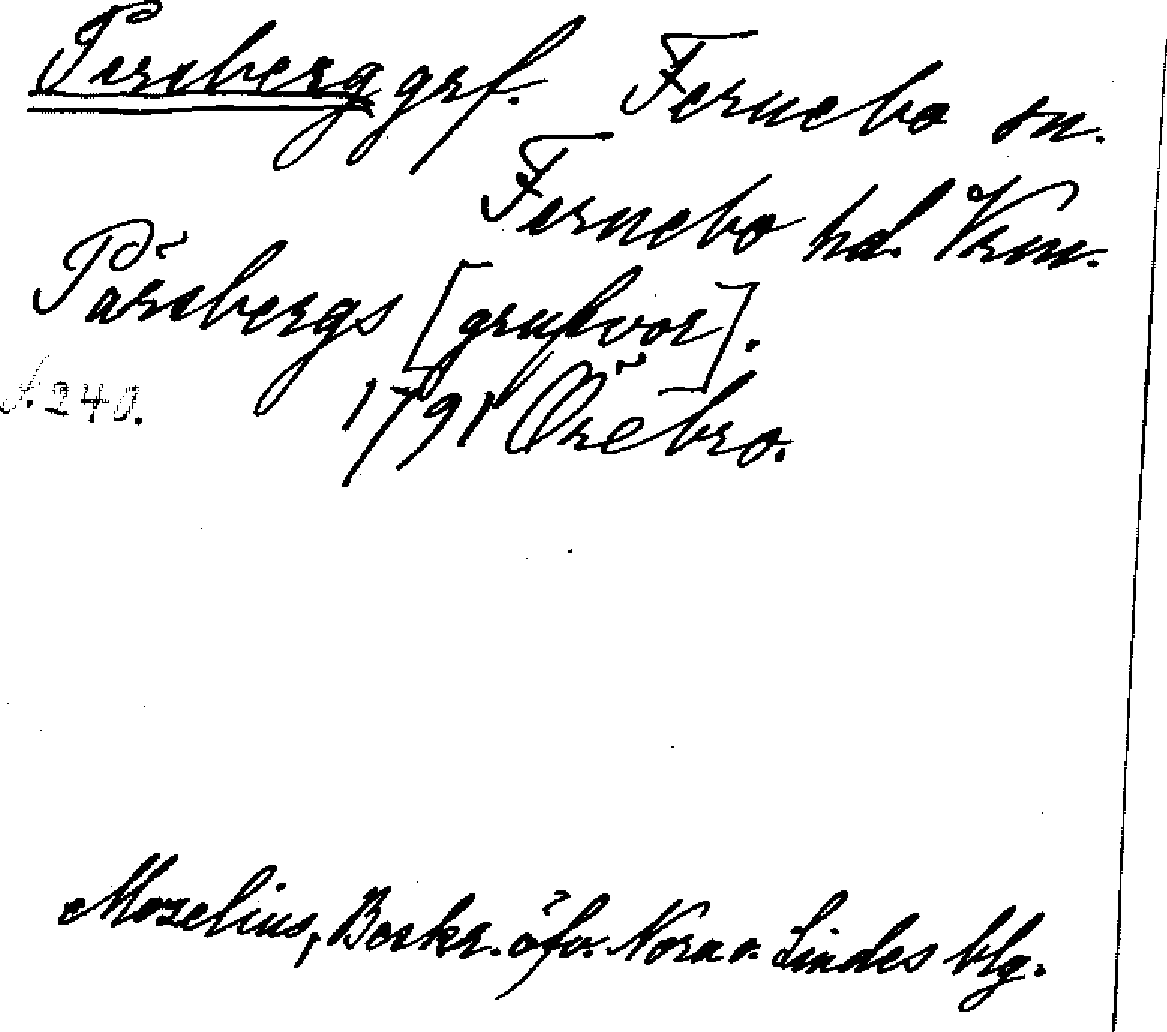 Persberg grf. Fernebo sn.
Fernebo hd. Vrm.
Pärsbergs [grufvor].
s. 240. 1791 Örebro.
Mozelius, Beskr. öfv. Nora o. Lindes blg.